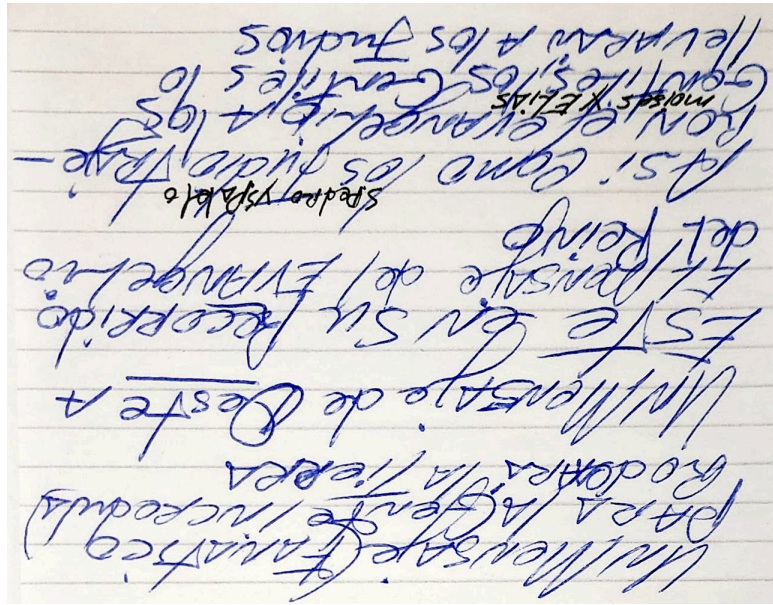 UN MENSAJE (FANATICO
PARA LA GENTE INCREDULA)
RODEARA LA TIERRA
UN MENSAJE de OESTE A
ESTE EN SU RECORRIDO
EL MENSAJE del EVANGELIO
del REINO
SPedro y SPablo
ASi como los judio TRAJE-
RON el evangelio A los
moises y ELIAS
GENTiles, los Gentiles lo
lleVARAN A los Judios